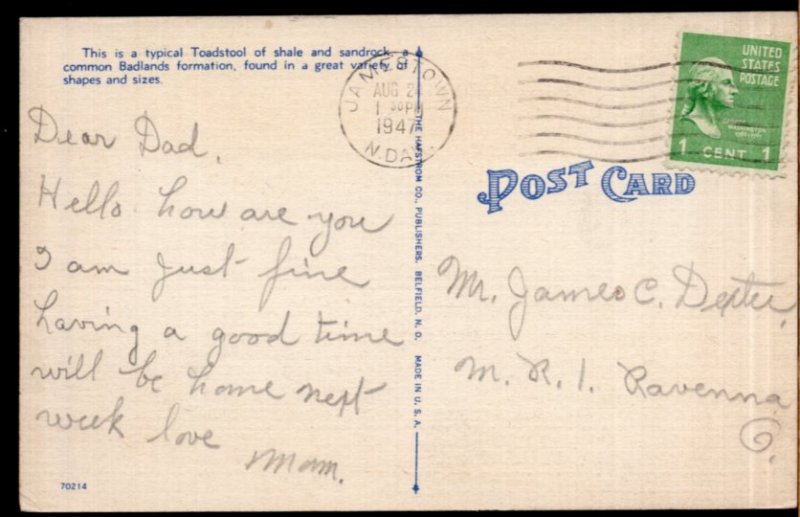 This is a typical Toadstool of shale and sandrock, a
common Badlands formation, found in a great variety of
shapes and sizes.
JAMESTOWN
AUG 2
1 30 PM
1947
N. DAK
UNITED
STATES
POSTAGE
WASHINGTON
1 CENT 1
POST CARD
Dear Dad,
Hello how are you
I am just fine
having a good time
will be home next
week love
Mom.
Mr. James C. Dexter,
R. 1. Ravenna
O.
THE HAFSTROM CO., PUBLISHERS, BELFIELD, N. D. MADE IN U. S. A.
70214